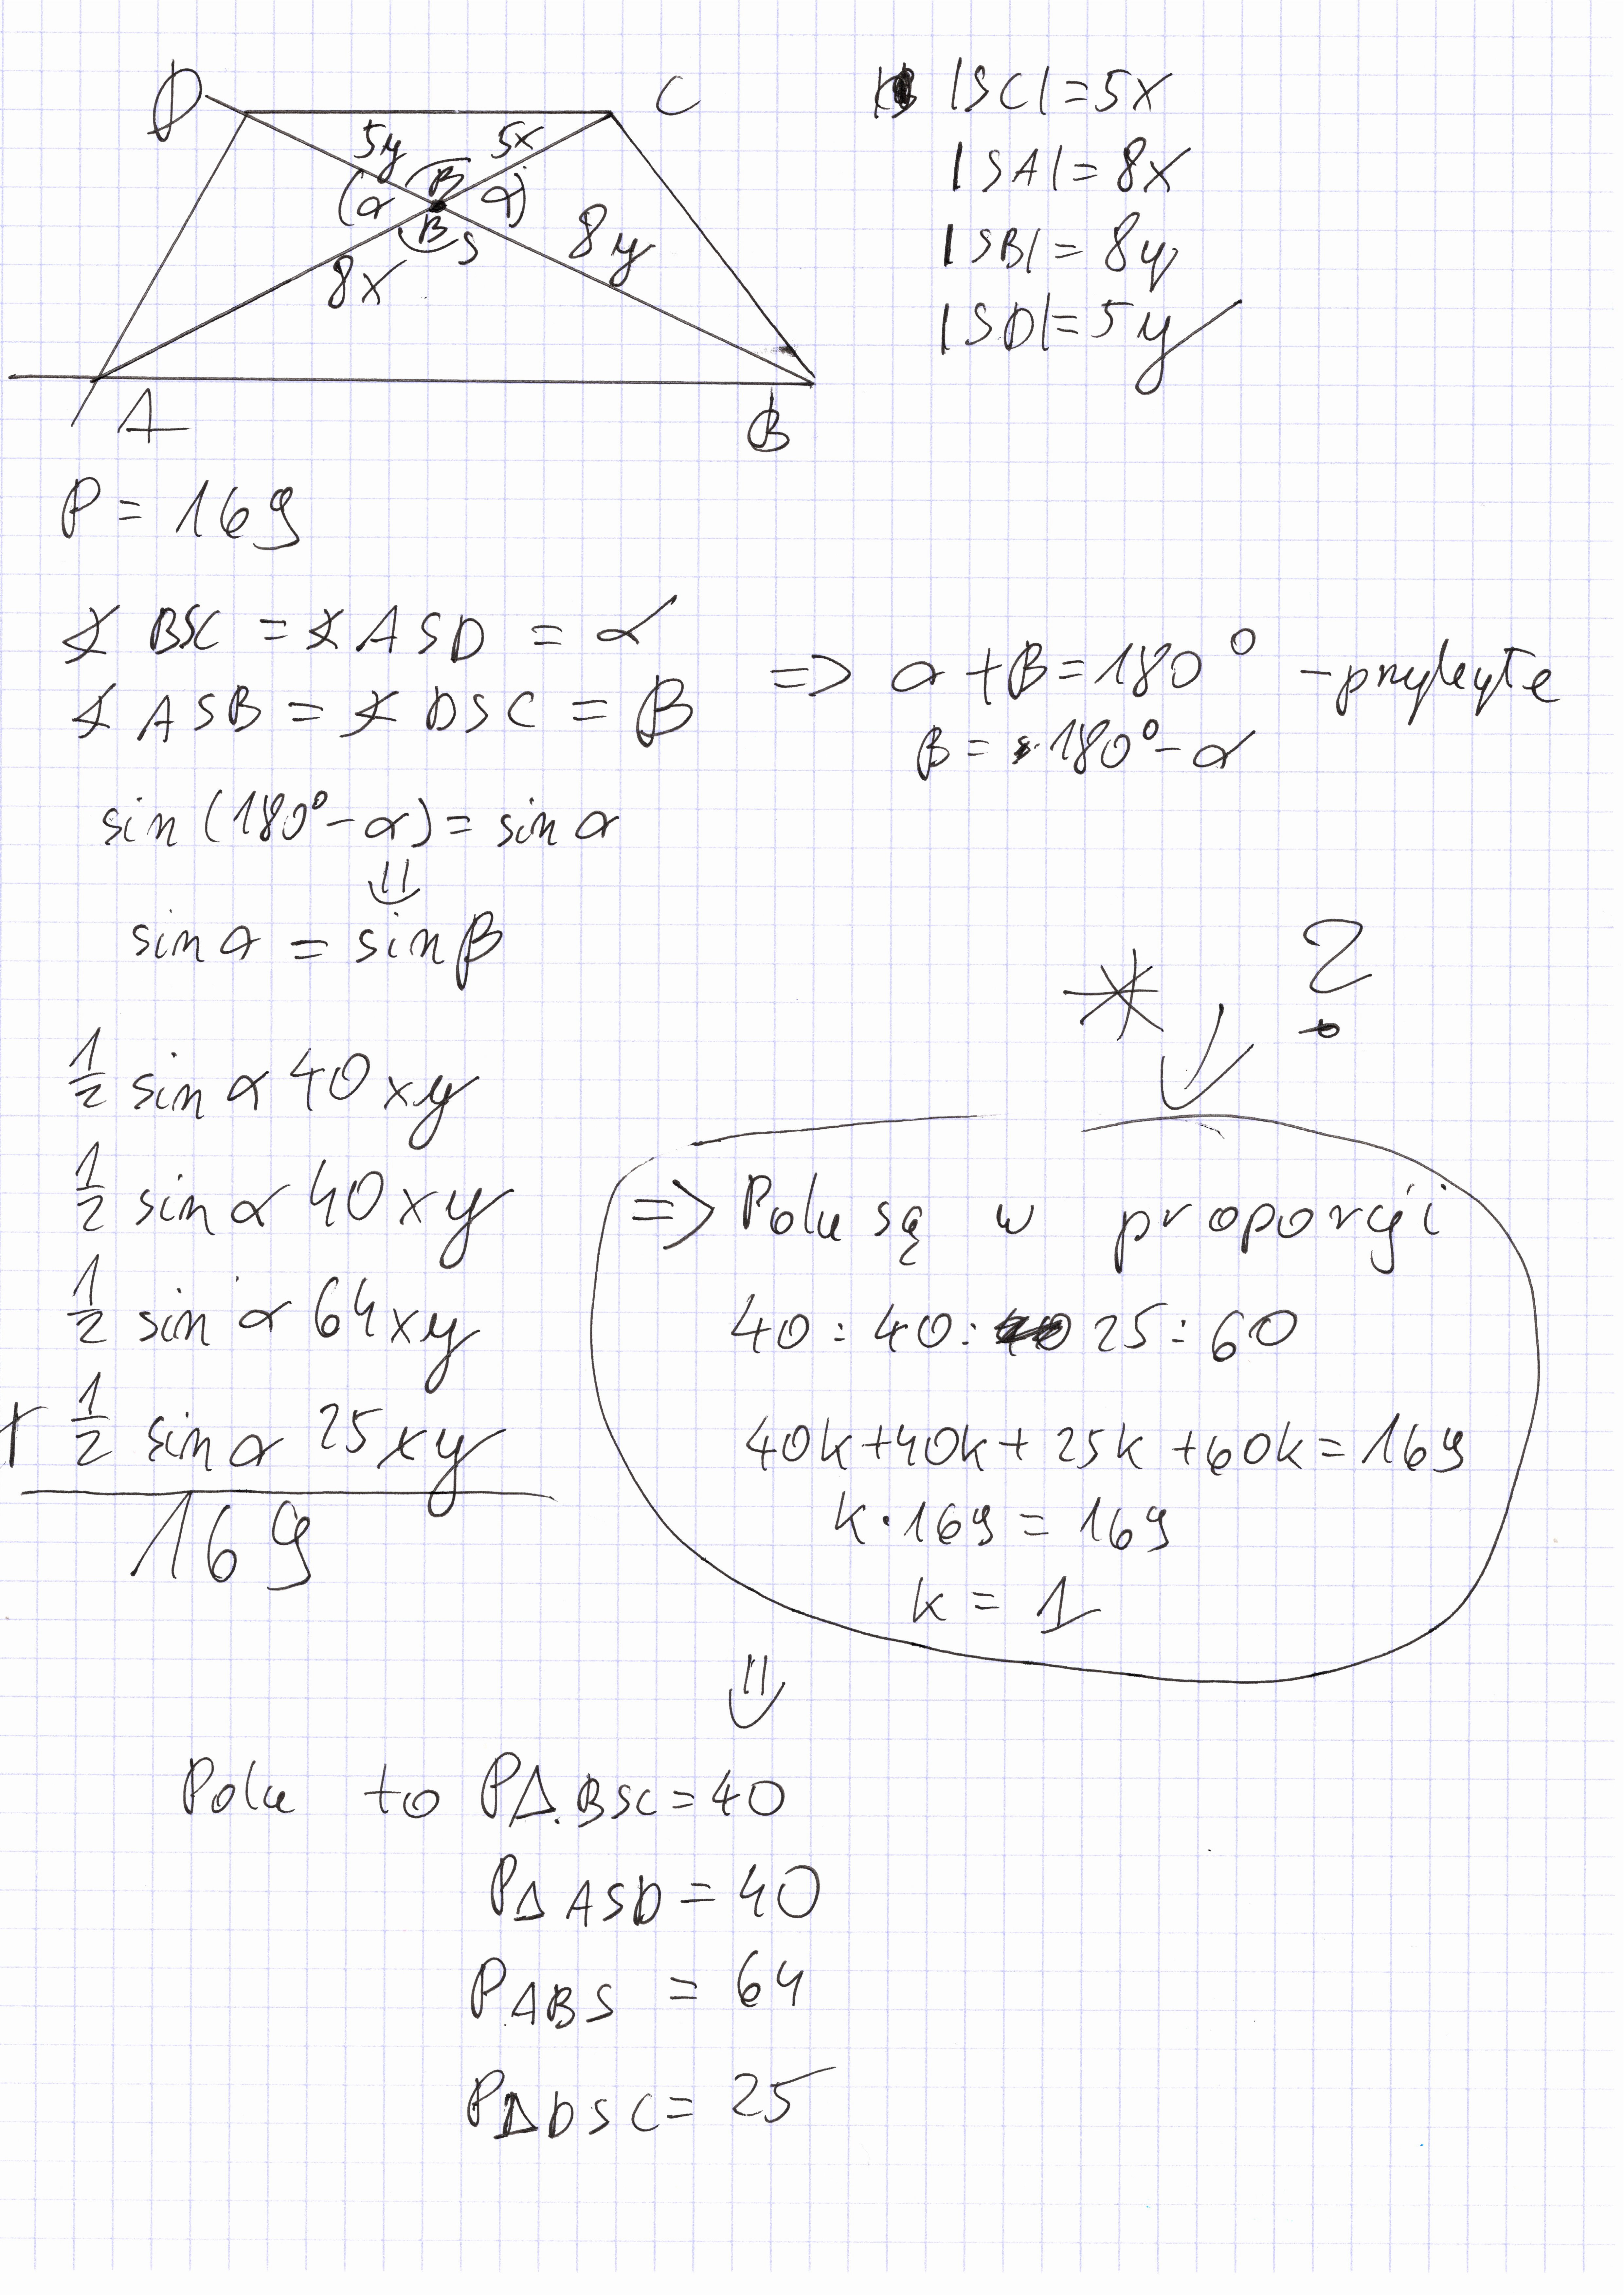 D C
5y 5x
α β α
β S
8x 8y
A B
|SC|=5x
|SA|=8x
|SB|=8y
|SD|=5y
P = 169
∡ BSC = ∡ ASD = α
∡ ASB = ∡ DSC = β
=> α + β = 180° - przyległe
β = 180° - α
sin (180° - α) = sin α
⇓
sin α = sin β
* ?
½ sin α 40xy
½ sin α 40xy
½ sin α 64xy
+ ½ sin α 25xy
169
=> Pola są w proporcji
40 : 40 : 25 : 60
40k+40k+25k+60k=169
k·169 = 169
k = 1
⇓
Pola to PΔBSC=40
PΔASD=40
PABS = 64
PΔDSC= 25